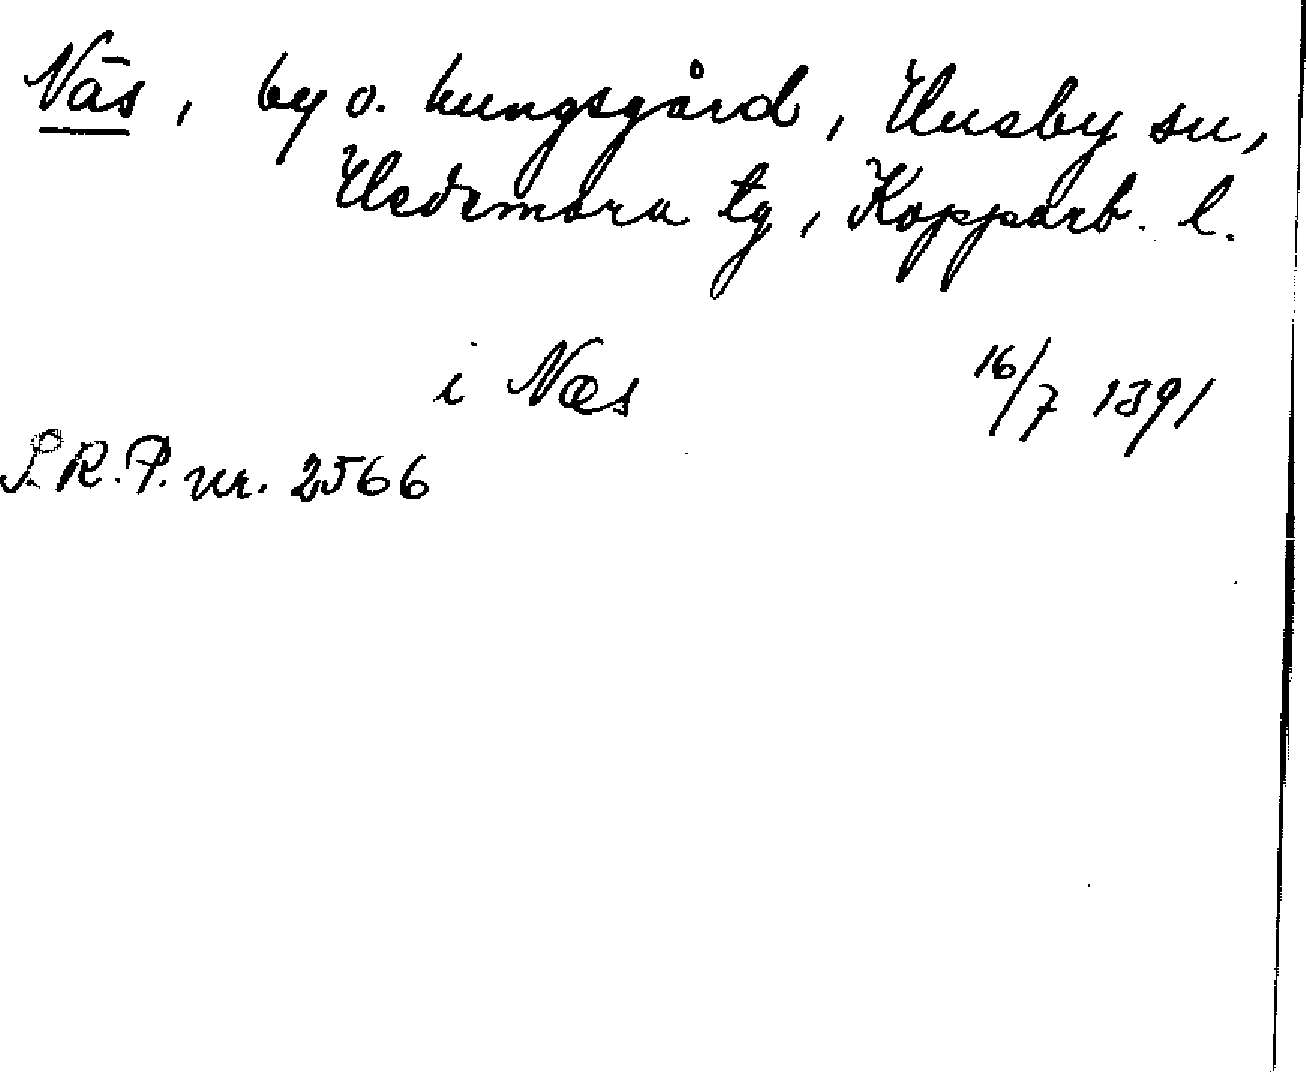 Näs, by o. kungsgård, Husby sn,
Hedemora tg, Kopparb. l.
i Næs 16/7 1391
S.R.P. nr. 2566